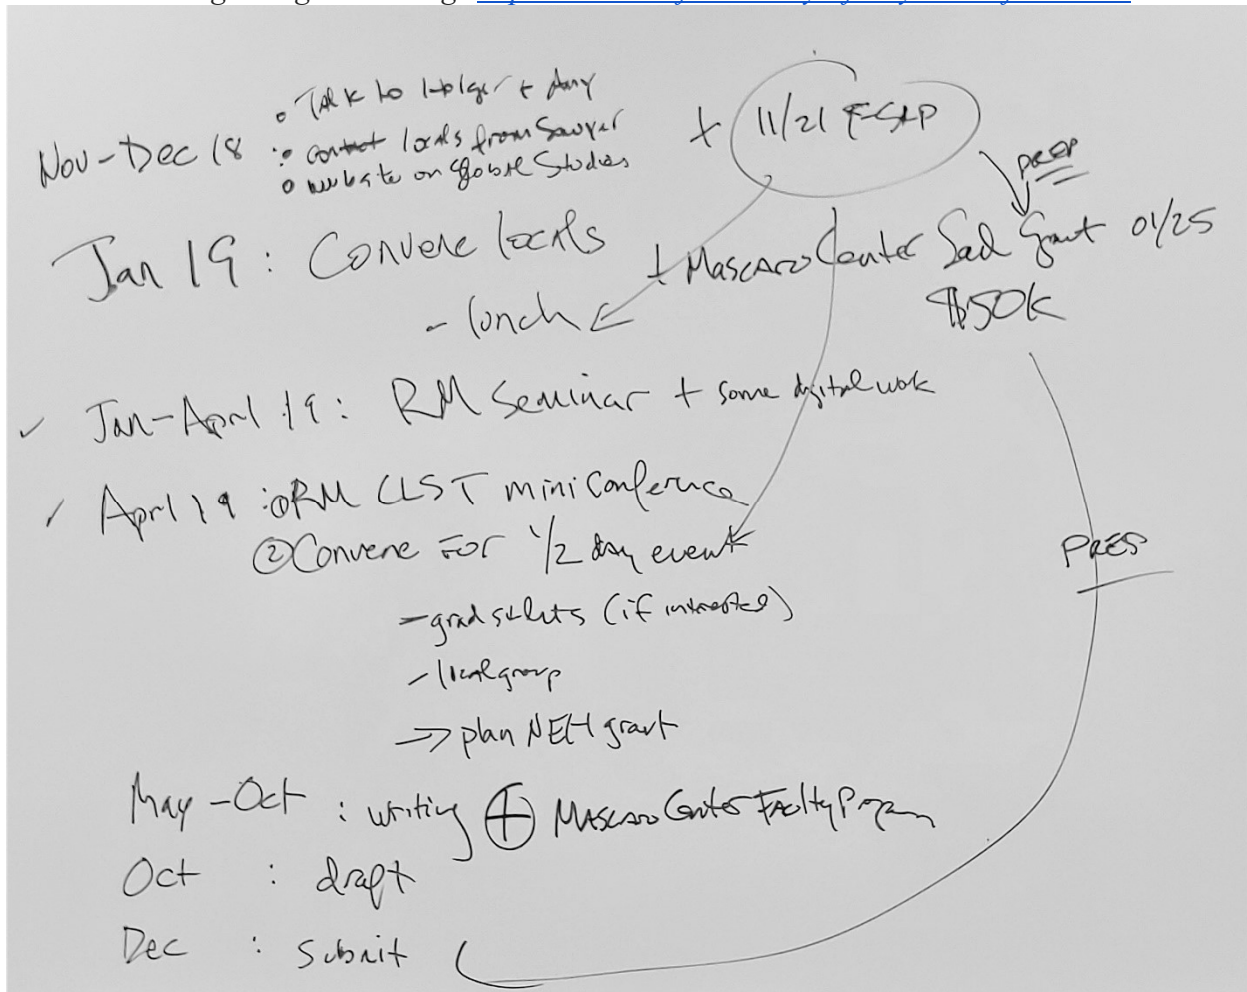 Nov-Dec 18
• Talk to Holger + Amy
• contact locals from Sawyer
• website on Global Studies
+ 11/21 F-SAP
PREP
Jan 19: Convene locals
- lunch
+ Mascaro Center Seed Grant 01/25
$50K
✓ Jan-April 19: RM Seminar + some digital work
✓ April 19: ① RM CLST miniconference
② Convene for 1/2 day event
- grad students (if interested)
- local group
→ plan NEH grant
PREP
May-Oct : writing ⊕ Mascaro Center Faculty Program
Oct : draft
Dec : submit